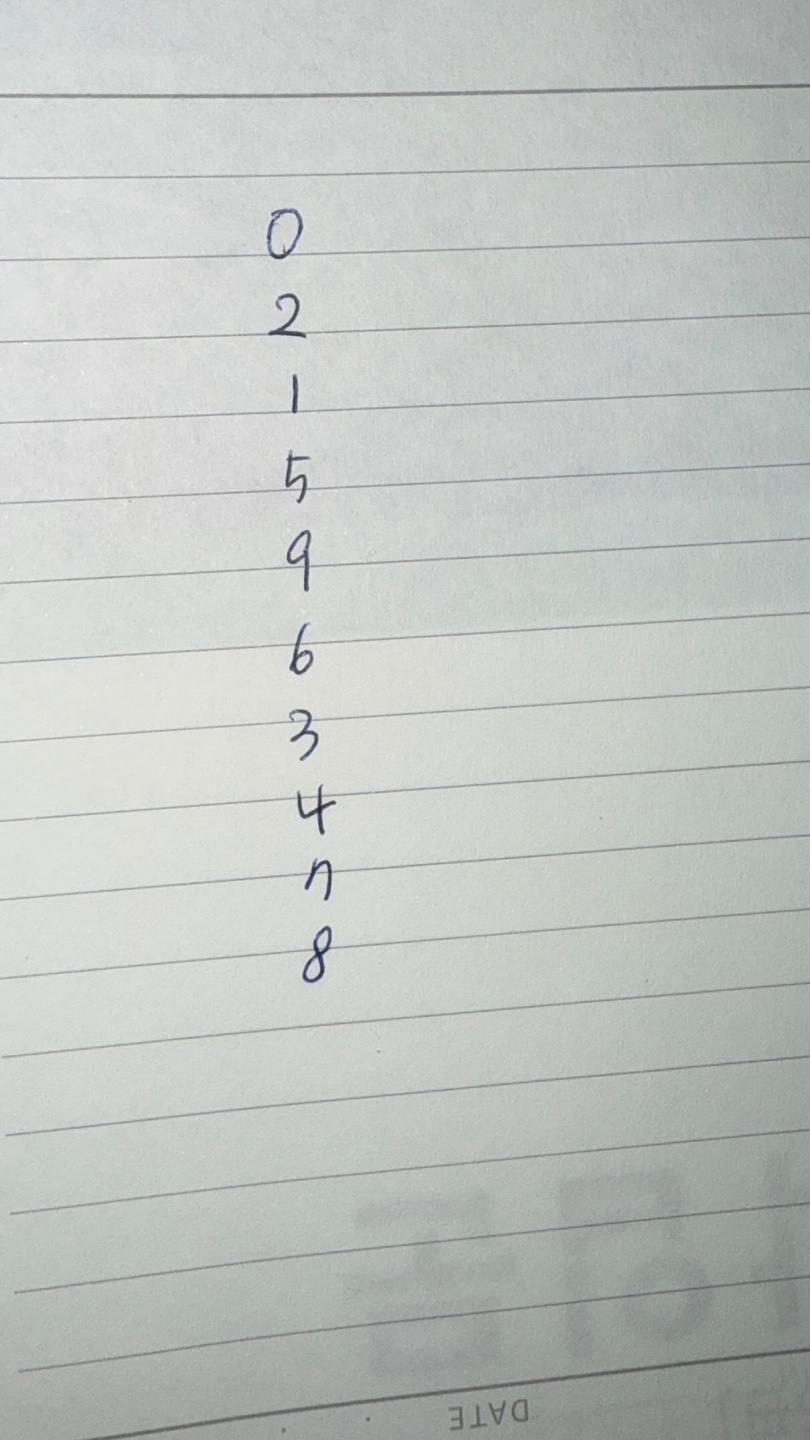 0
2
1
5
9
6
3
4
7
8
DATE